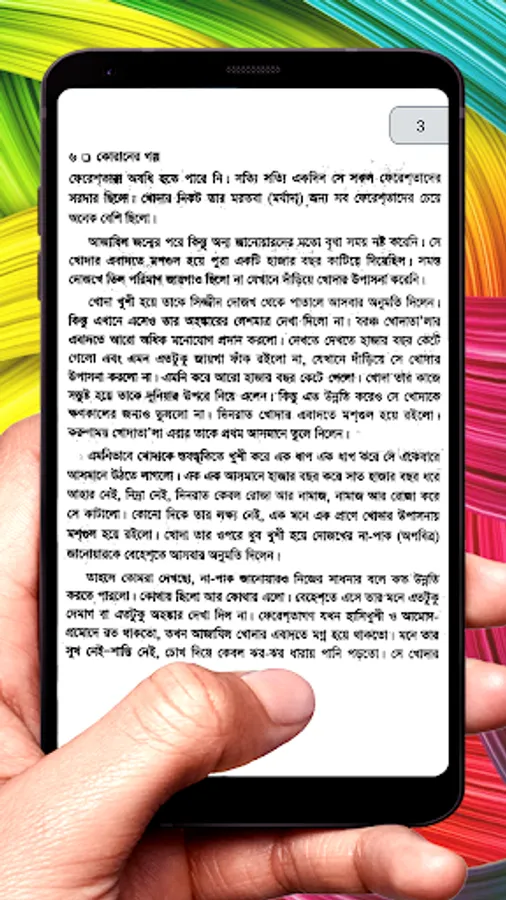 3
৬ ❑ কোরানের গল্প
ফেরেশ্‌তারা অবধি হতে পারে নি। সত্যি সত্যি একদিন সে সকল ফেরেশ্‌তাদের
সরদার ছিলো। খোদার নিকট তার মরতবা (মর্যাদা) অন্য সব ফেরেশ্‌তাদের চেয়ে
অনেক বেশি ছিলো।
আজাযিল জন্মের পরে কিন্তু অন্য জানোয়ারদের মতো বৃথা সময় নষ্ট করেনি। সে
খোদার এবাদতে মশ্‌গুল হয়ে পুরা একটি হাজার বছর কাটিয়ে দিয়েছিল। সমস্ত
দোজখে তিল পরিমাণ জায়গাও ছিলো না যেখানে দাঁড়িয়ে খোদার উপাসনা করেনি।
খোদা খুশী হয়ে তাকে সিজ্জীন দোজখ থেকে পাতালে আসবার অনুমতি দিলেন।
কিন্তু এখানে এসেও তার অহঙ্কারের লেশমাত্র দেখা দিলো না। বরঞ্চ খোদাতা'লার
এবাদতে আরো অধিক মনোযোগ প্রদান করলো। দেখতে দেখতে হাজার বছর কেটে
গেলো এবং এমন এতটুকু জায়গা ফাঁক রইলো না, যেখানে দাঁড়িয়ে সে খোদার
উপাসনা করলো না। এমনি করে আরো হাজার বছর কেটে গেলো। খোদা তার কাজে
সন্তুষ্ট হয়ে তাকে দুনিয়ার উপরে নিয়ে এলেন। কিন্তু এত উন্নতি করেও সে খোদাকে
ক্ষণকালের জন্যও ভুললো না। দিনরাত খোদার এবাদতে মশ্‌গুল হয়ে রইলো।
করুণাময় খোদাতা'লা এবার তাকে প্রথম আসমানে তুলে নিলেন।
এমনিভাবে খোদাকে স্তবস্তুতিতে খুশী করে এক ধাপ এক ধাপ করে সে একেবারে
আসমানে উঠতে লাগলো। এক এক আসমানে হাজার বছর করে সাত হাজার বছর ধরে
আহার নেই, নিদ্রা নেই, দিনরাত কেবল রোজা আর নামাজ, নামাজ আর রোজা করে
সে কাটালো। কোনো দিকে তার লক্ষ্য নেই, এক মনে এক প্রাণে খোদার উপাসনায়
মশ্‌গুল হয়ে রইলো। খোদা তার ওপরে খুব খুশী হয়ে দোজখের না-পাক (অপবিত্র)
জানোয়ারকে বেহেশ্‌তে আসবার অনুমতি দিলেন।
তাহলে তোমরা দেখছো, না-পাক জানোয়ারও নিজের সাধনার বলে কত উন্নতি
করতে পারলো। কোথায় ছিলো আর কোথায় এলো। বেহেশ্‌তে এসে তার মনে এতটুকু
দেমাগ বা এতটুকু অহঙ্কার দেখা দিল না। ফেরেশ্‌তাগণ যখন হাসিখুশী ও আমোদ-
প্রমোদে রত থাকতো, তখন আজাযিল খোদার এবাদতে মগ্ন হয়ে থাকতো। মনে তার
সুখ নেই-শান্তি নেই, চোখ দিয়ে কেবল ঝর-ঝর ধারায় পানি পড়তো। সে খোদার